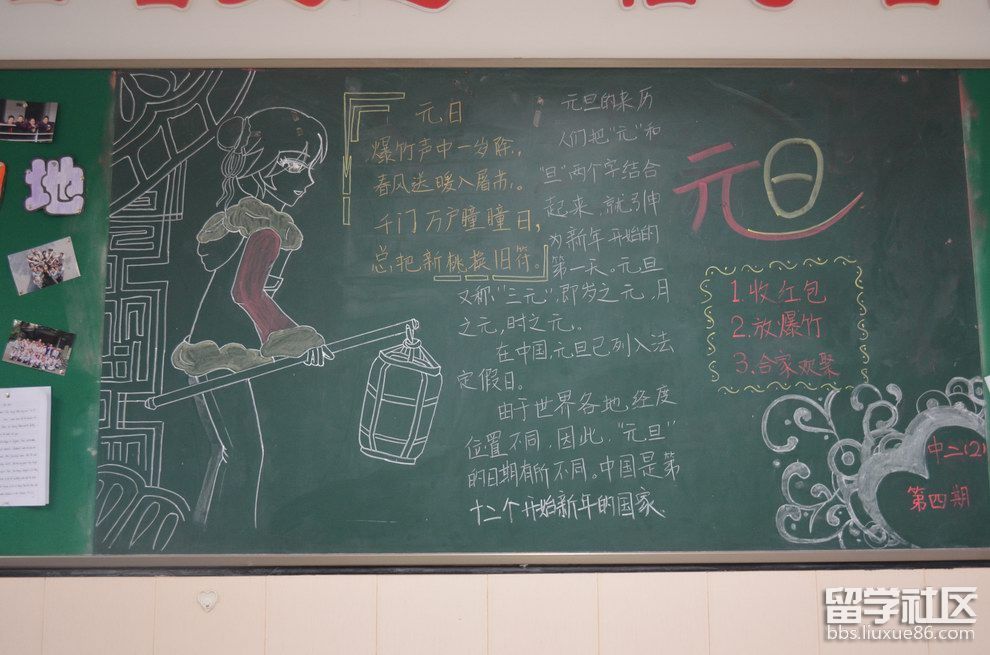 地
元日
爆竹声中一岁除,
春风送暖入屠苏。
千门万户瞳瞳日,
总把新桃换旧符。
元旦的来历
人们把“元”和
“旦”两个字结合
起来,就引申
为新年开始的
第一天。元旦
又称“三元”,即岁之元,月
之元,时之元。
在中国,元旦已列入法
定假日。
由于世界各地,经度
位置不同,因此,“元旦”
的日期有所不同。中国是第
十二个开始新年的国家.
元旦
1.收红包
2.放爆竹
3.合家欢聚
中二(2)
第四期
留学社区
bbs.liuxue86.com